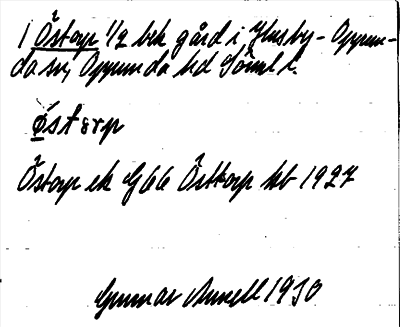 1 Östorp 1/2 bek gård i Husby-Oppun-
da sn, Oppunda hd Söml l.
östɷrp
Östorp ek G66 Östtorp kb 1927
Gunnar 1930